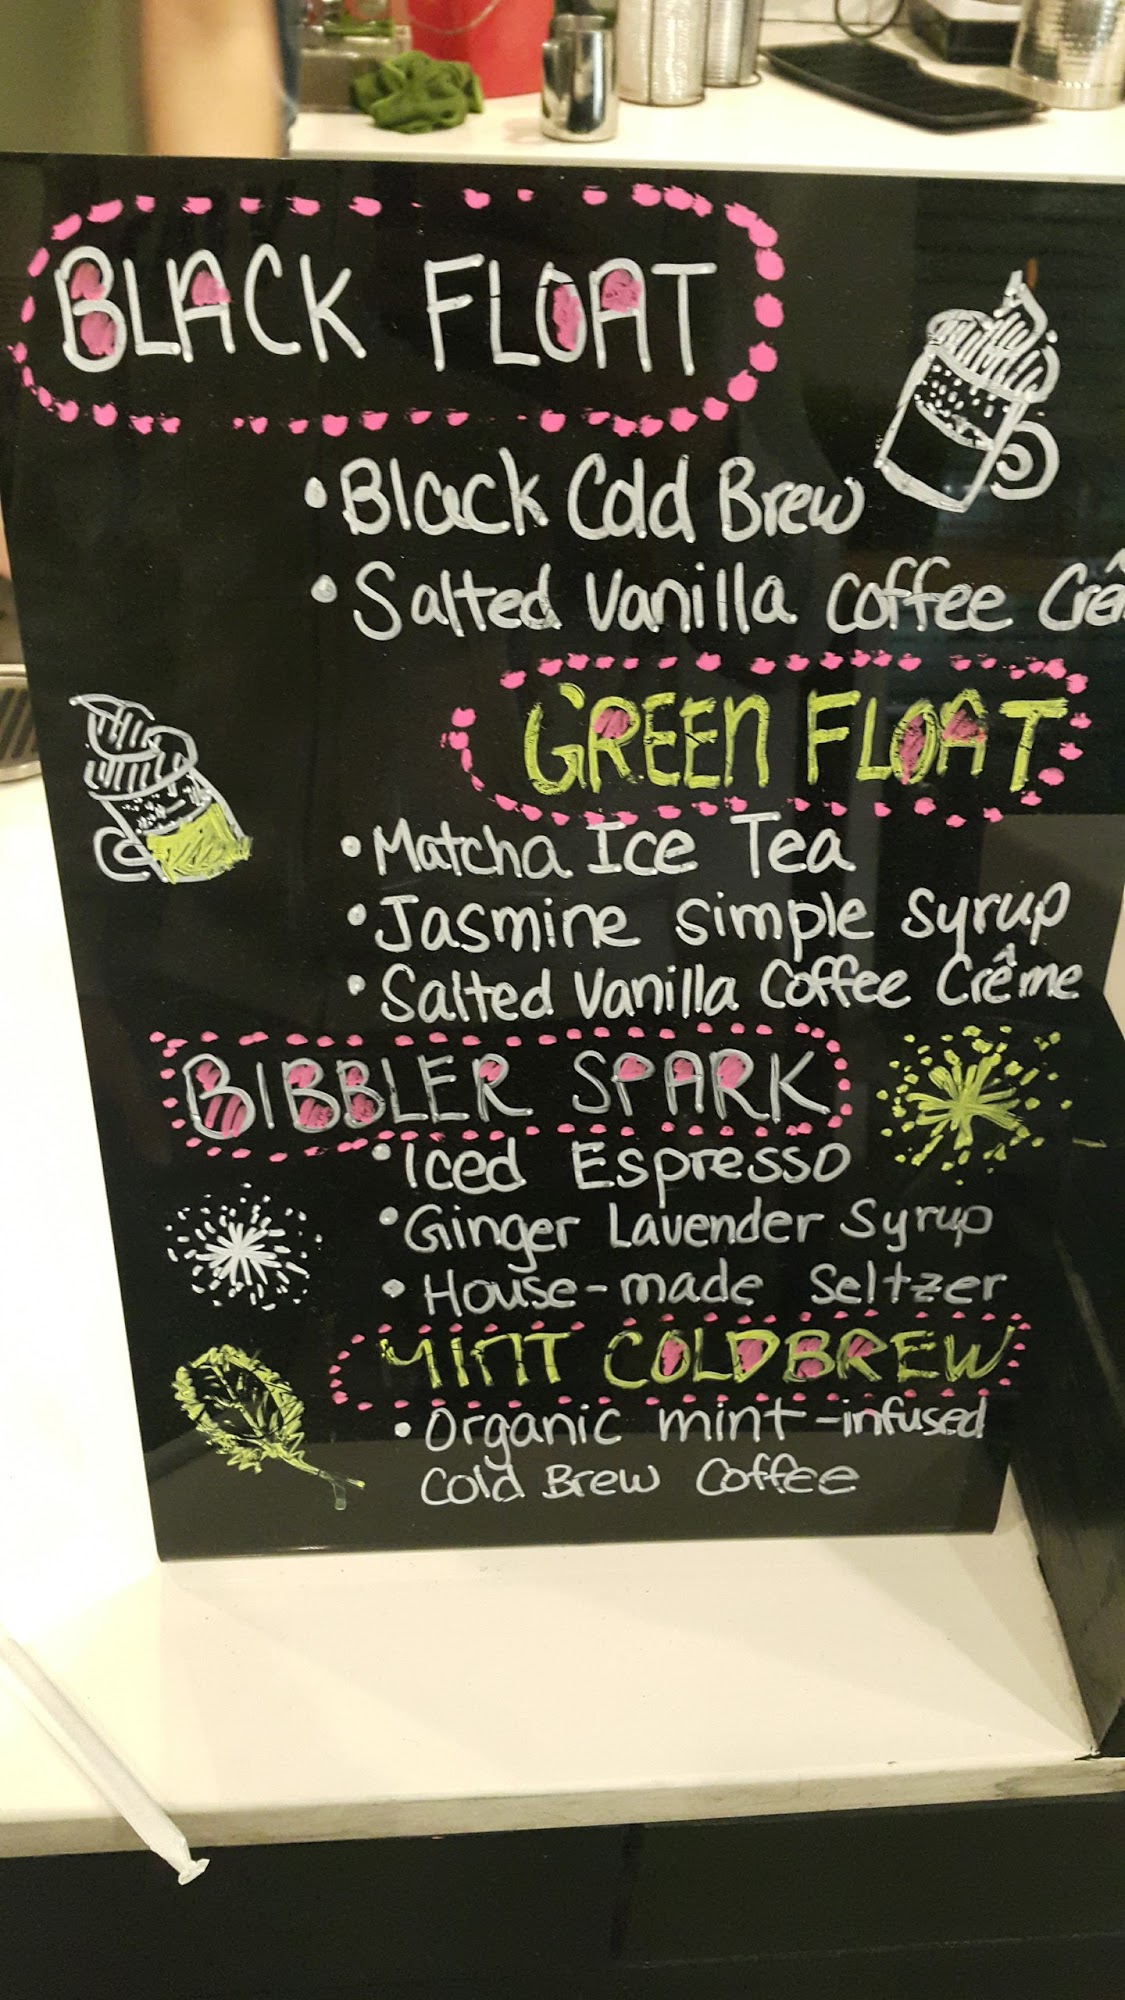 BLACK FLOAT
• Black Cold Brew
• Salted Vanilla Coffee Crê
GREEN FLOAT
• Matcha Ice Tea
• Jasmine simple syrup
• Salted Vanilla Coffee Crême
BIBBLER SPARK
• Iced Espresso
• Ginger Lavender Syrup
• House-made Seltzer
MINT COLDBREW
• Organic mint-infused
Cold Brew Coffee